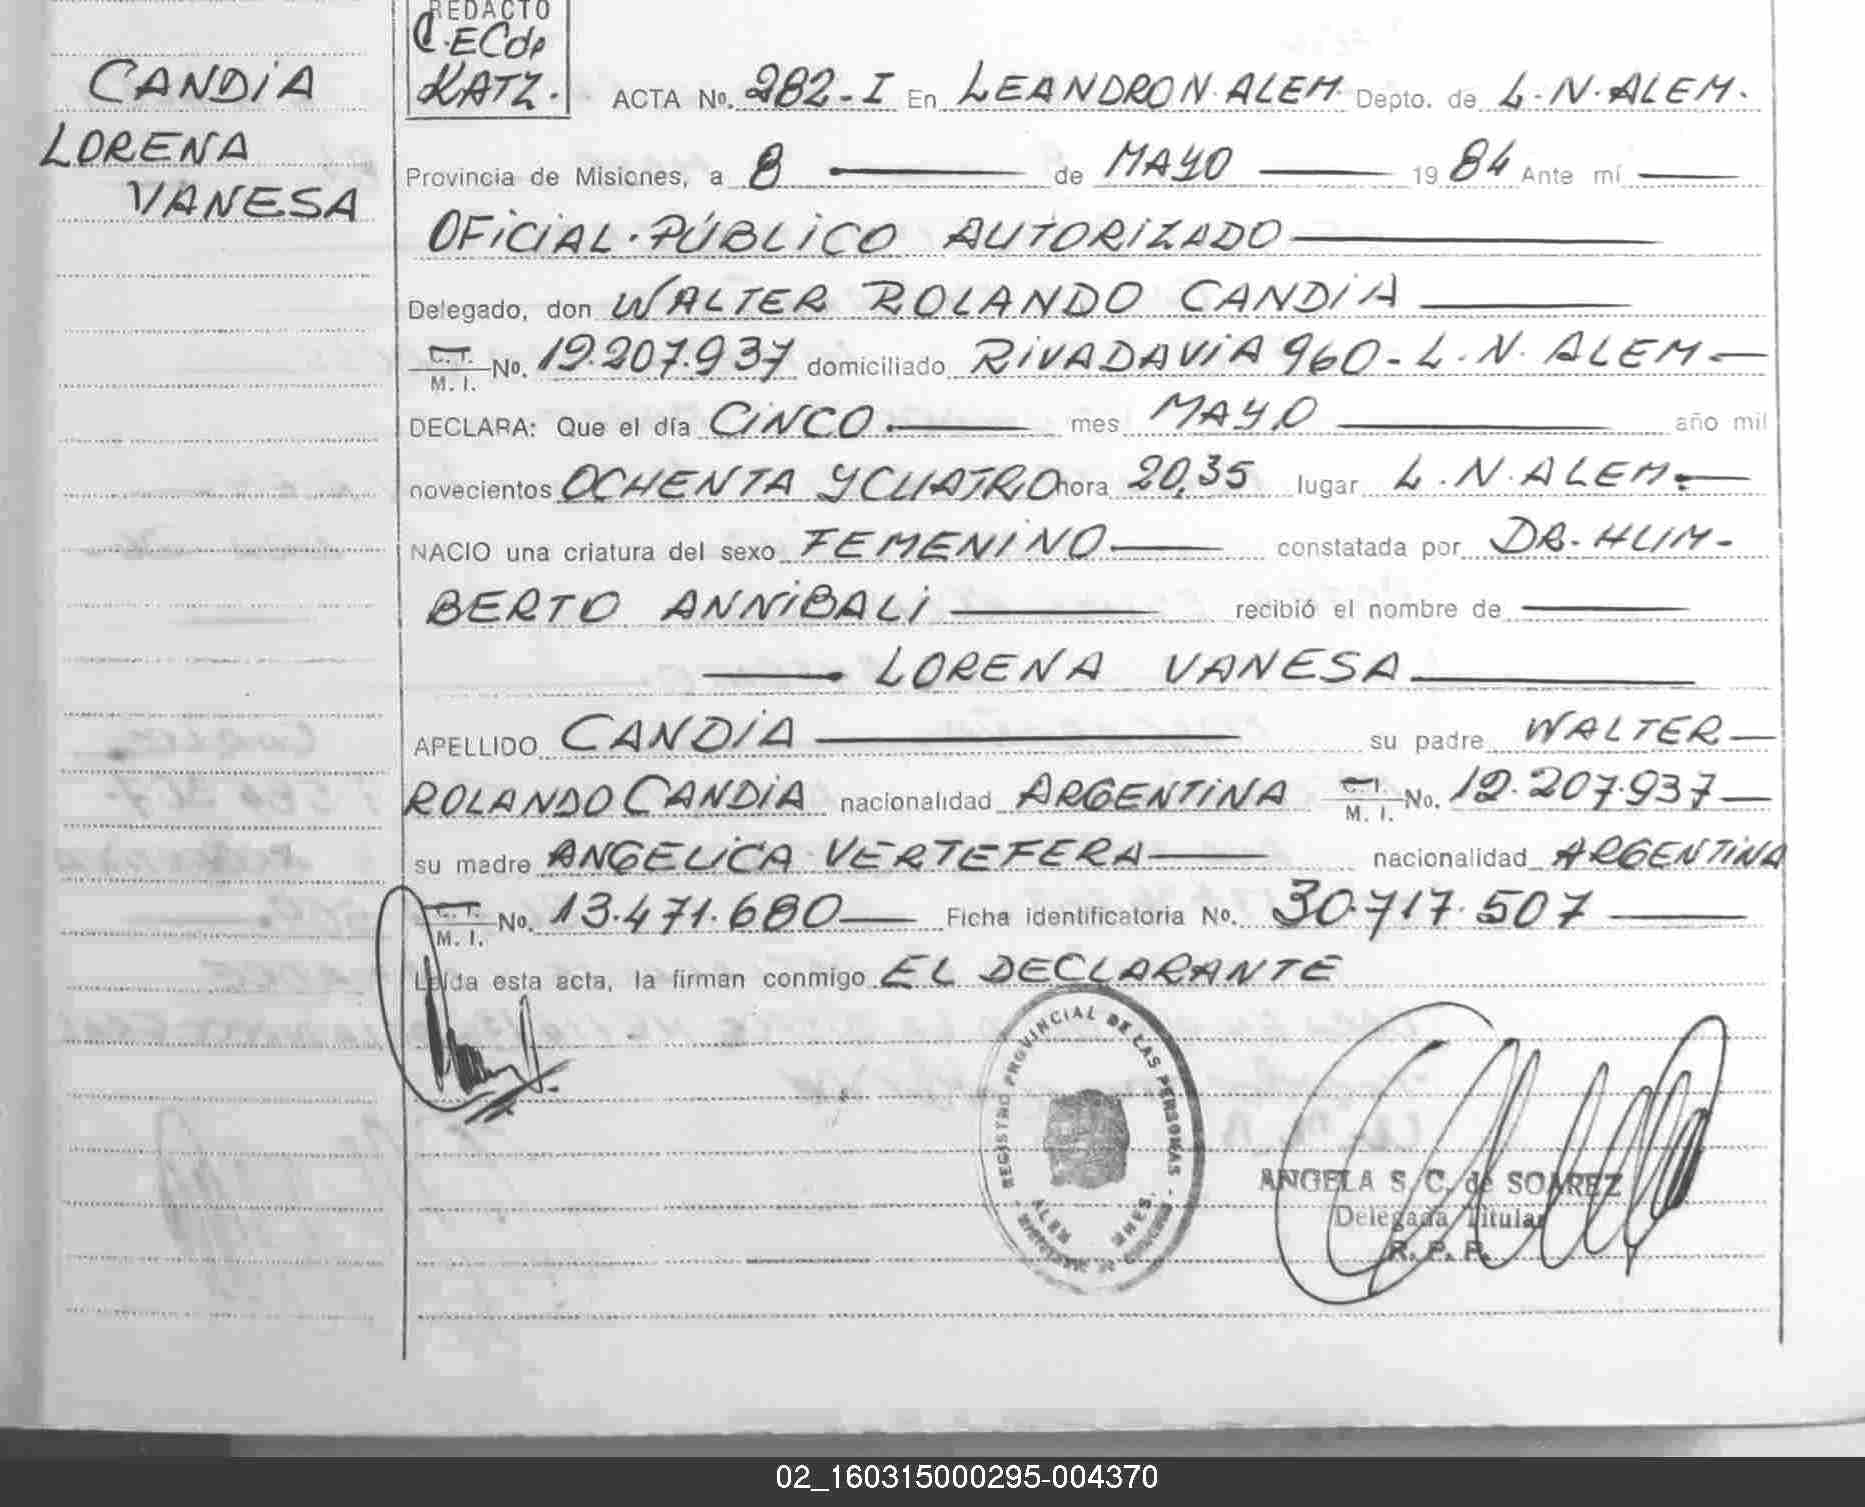 CANDIA
LORENA
VANESA
REDACTO
C. ECde
KATZ.
ACTA No. 282-I En LEANDRO N. ALEM Depto. de L. N. ALEM.
Provincia de Misiones, a 8 de MAYO 1984 Ante mí
OFICIAL PÚBLICO AUTORIZADO
Delegado, don WALTER ROLANDO CANDIA
C. I. M. I. No. 12.207.937 domiciliado RIVADAVIA 960 - L. N. ALEM
DECLARA: Que el día CINCO mes MAYO año mil
novecientos OCHENTA Y CUATRO hora 20,35 lugar L. N. ALEM.
NACIO una criatura del sexo FEMENINO constatada por DR. HUM-
BERTO ANNIBALI recibió el nombre de
LORENA VANESA
APELLIDO CANDIA su padre WALTER
ROLANDO CANDIA nacionalidad ARGENTINA C. I. M. I. No. 12.207.937
su madre ANGELICA VERTEFERA nacionalidad ARGENTINA
C. I. M. I. No. 13.471.680 Ficha identificatoria No. 30.717.507
Leída esta acta, la firman conmigo EL DECLARANTE
REGISTRO PROVINCIAL DE LAS PERSONAS
ALEM MNES.
ANGELA S. C. de SOAREZ
Delegada Titular
R. P. P.
02_160315000295-004370